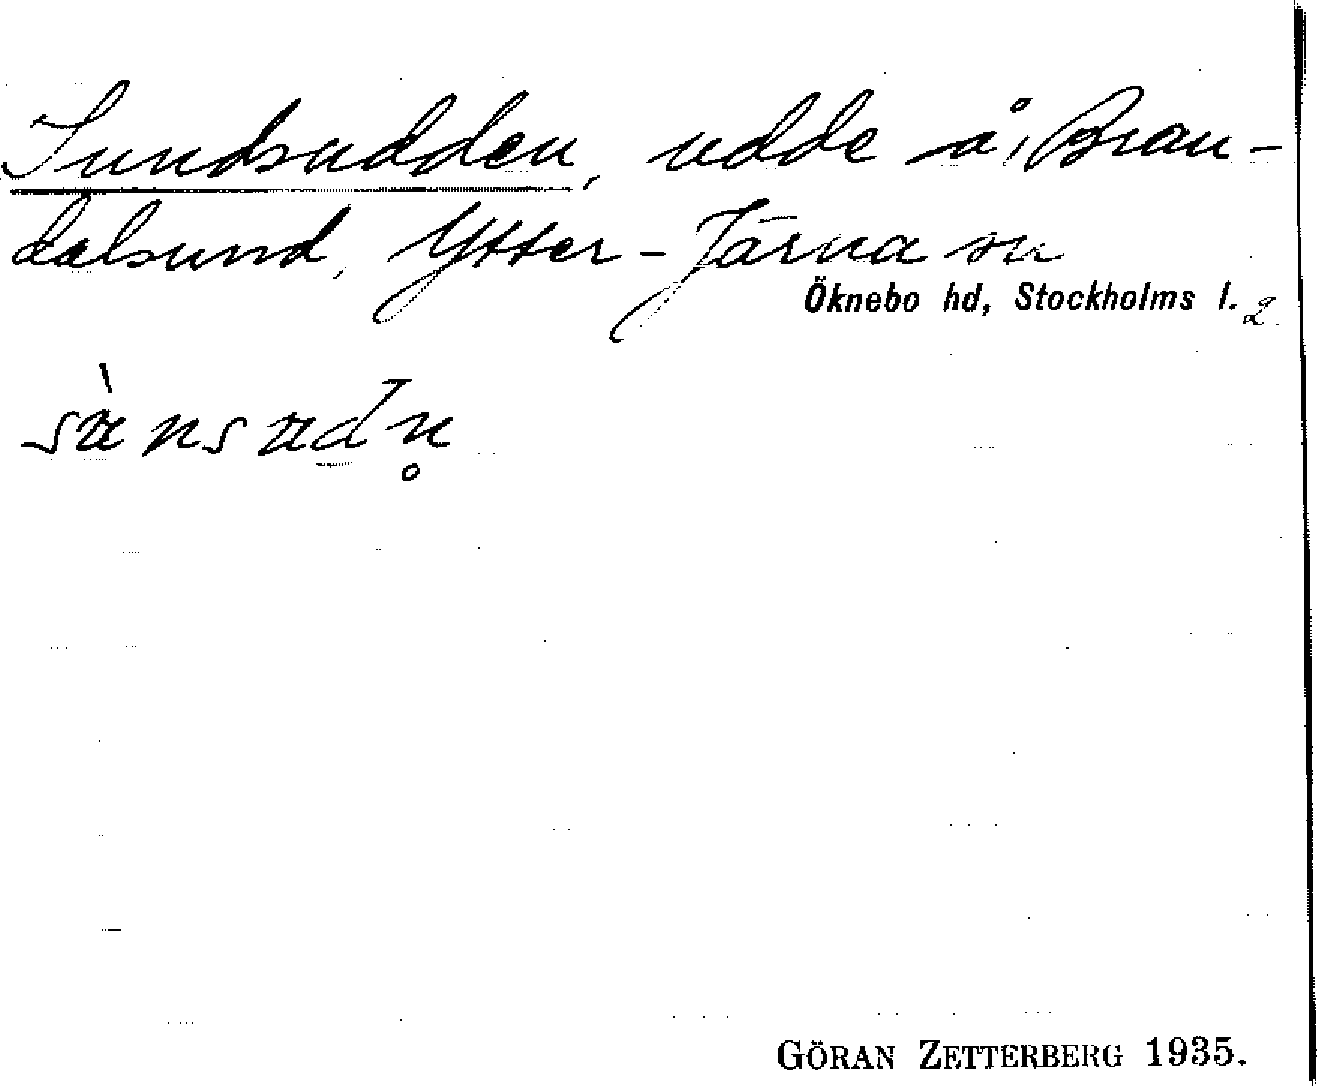 Sundsudden, udde å, Bran-
dalsund, Ytter-Järna sn
Öknebo hd, Stockholms l. 2
sùnsudn̥
GÖRAN ZETTERBERG 1935.